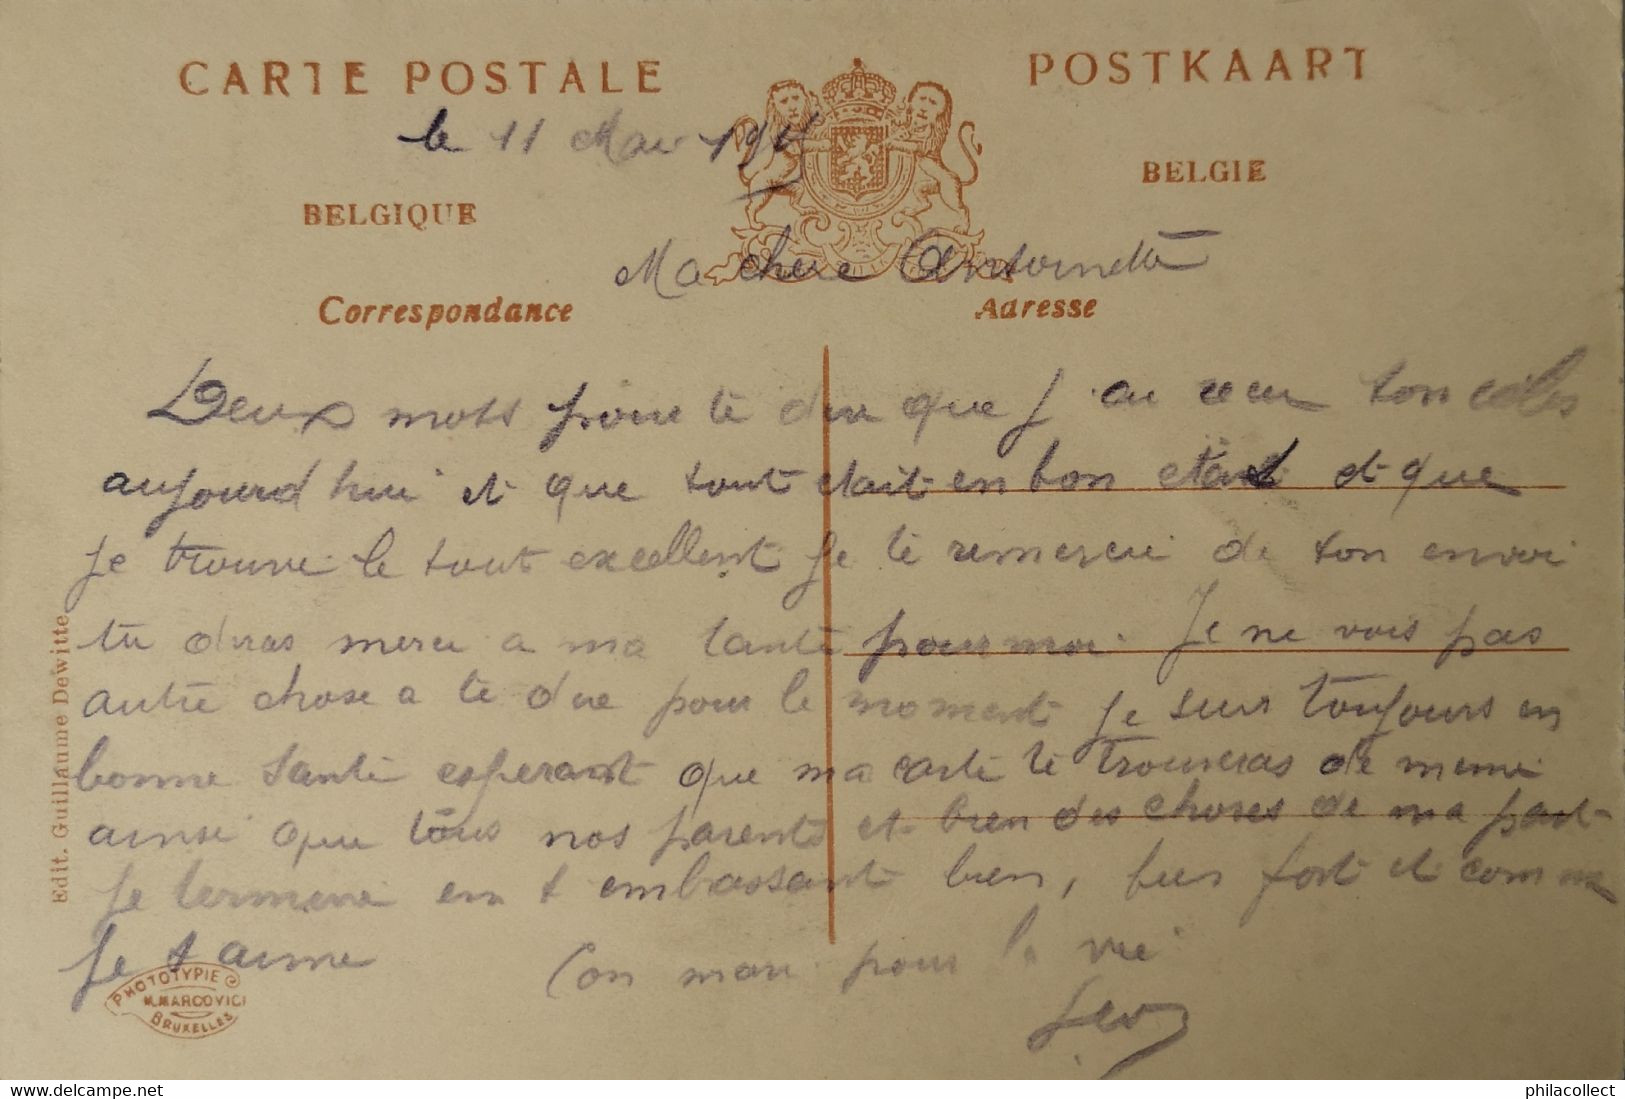 CARTE POSTALE
POSTKAART
le 11 Mai
BELGIQUE
BELGIE
Ma chere Antoinette
Correspondance
Adresse
Deux mots pour te dire que j ai recu ton colis
aujourd hui et que tout etait en bon etat et que
je trouve le tout excellent je te remercie de ton envoi
tu diras merci a ma tante pour moi. Je ne vois pas
autre chose a te dire pour le moment je suis toujours en
bonne santé esperant que ma carte te trouveras de meme
ainsi que tous nos parents et bien des choses de ma part
Je termine en t embrassant bien, bien fort et comme
je t aime
Ton mari pour la vie
Edit. Guillaume Dewitte
PHOTOTYPIE
M. MARCOVICI
BRUXELLES
https://www.delcampe.net
philacollect